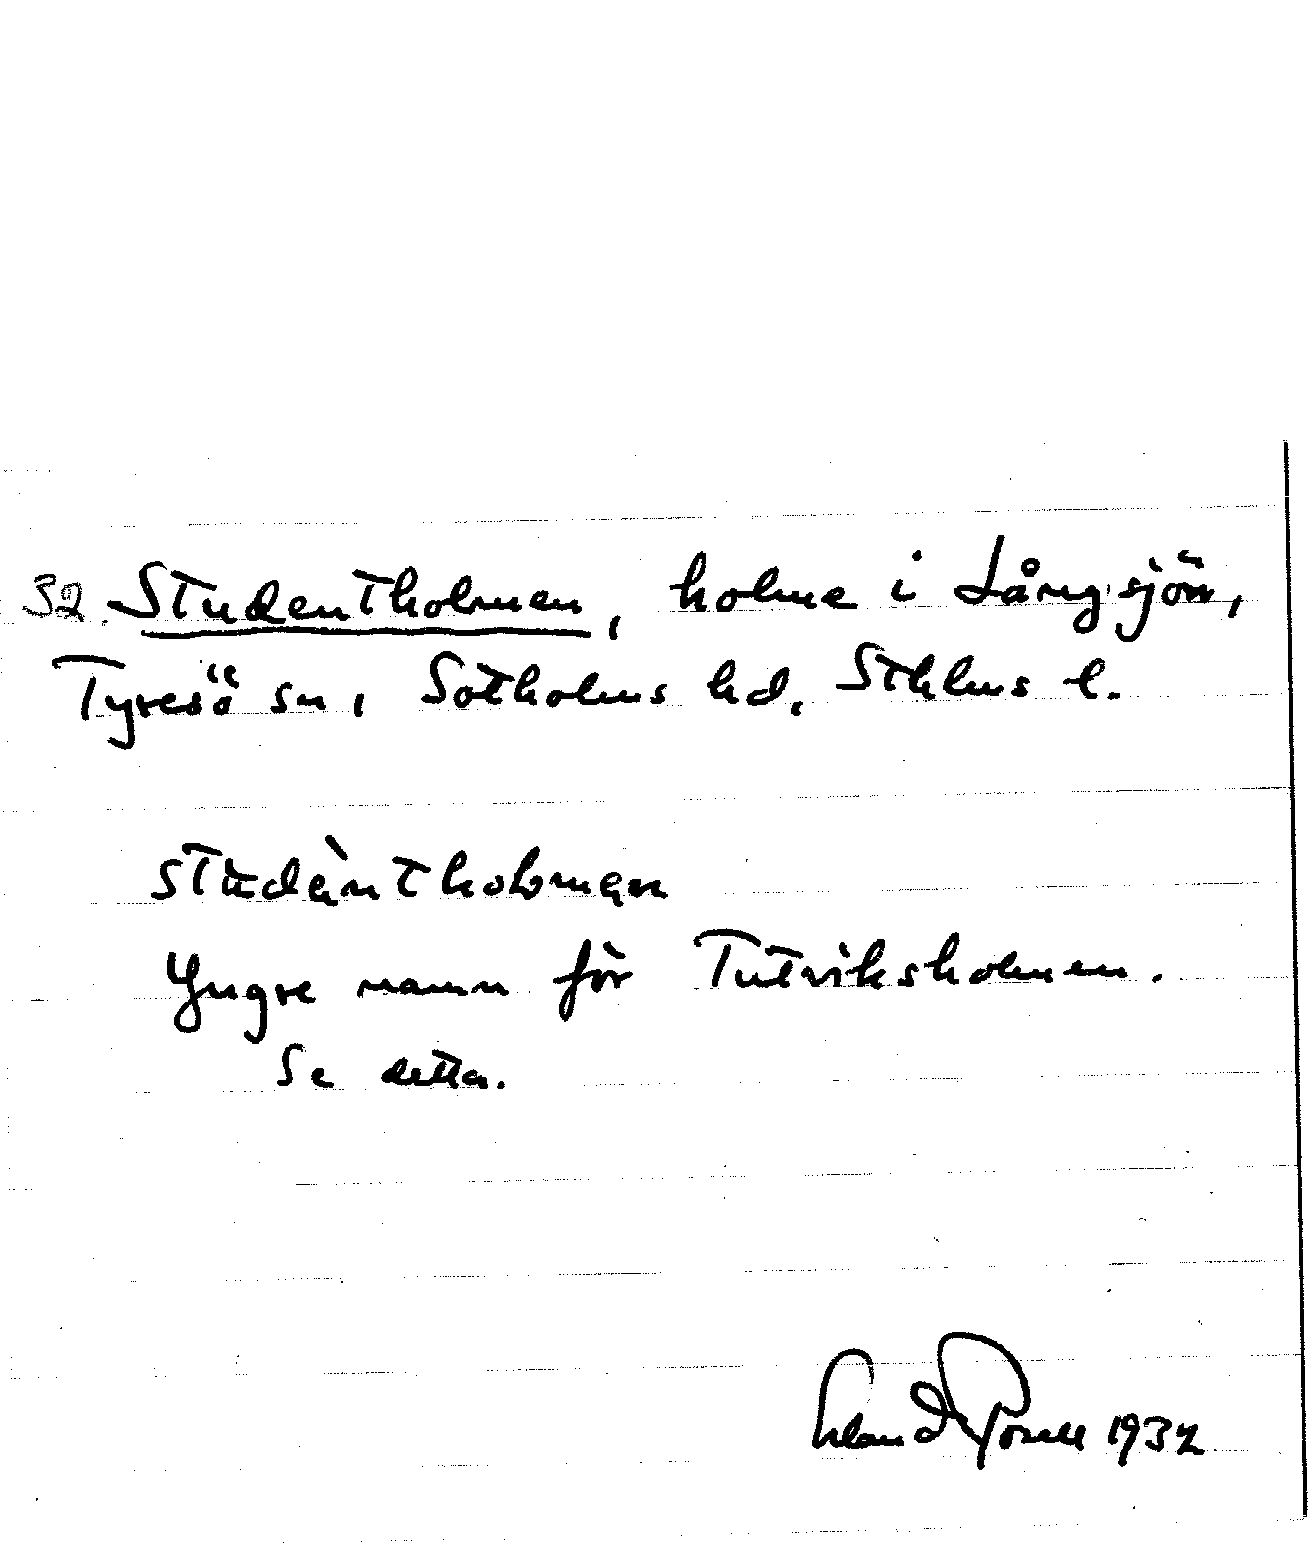 32. Studentholmen, holme i Långsjön,
Tyresö sn, Sotholms hd, Sthlms l.
studàntholmən
Yngre namn för Tutviksholmen.
Se detta.
Erland Rosell 1937